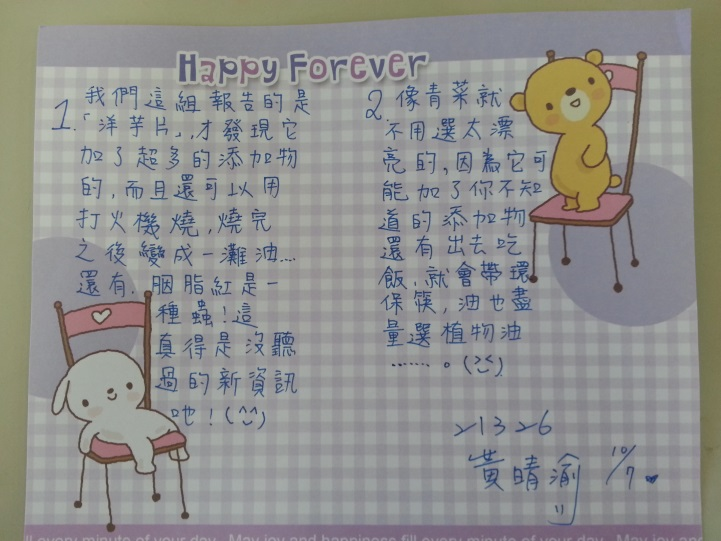 Happy Forever
1. 我們這組報告的是
「洋芋片」,才發現它
加了超多的添加物
的,而且還可以用
打火機燒,燒完
之後變成一灘油...
還有.胭脂紅是一
種蟲!這
真得是沒聽
過的新資訊
吔!(^^)
2. 像青菜就
不用選太漂
亮的,因為它可
能加了你不知
道的添加物
還有出去吃
飯,就會帶環
保筷,油也盡
量選植物油
.......。(><)
21326
黃晴渝 10/7
ll every minute of your day. May joy and happiness fill every minute of your day. May joy and